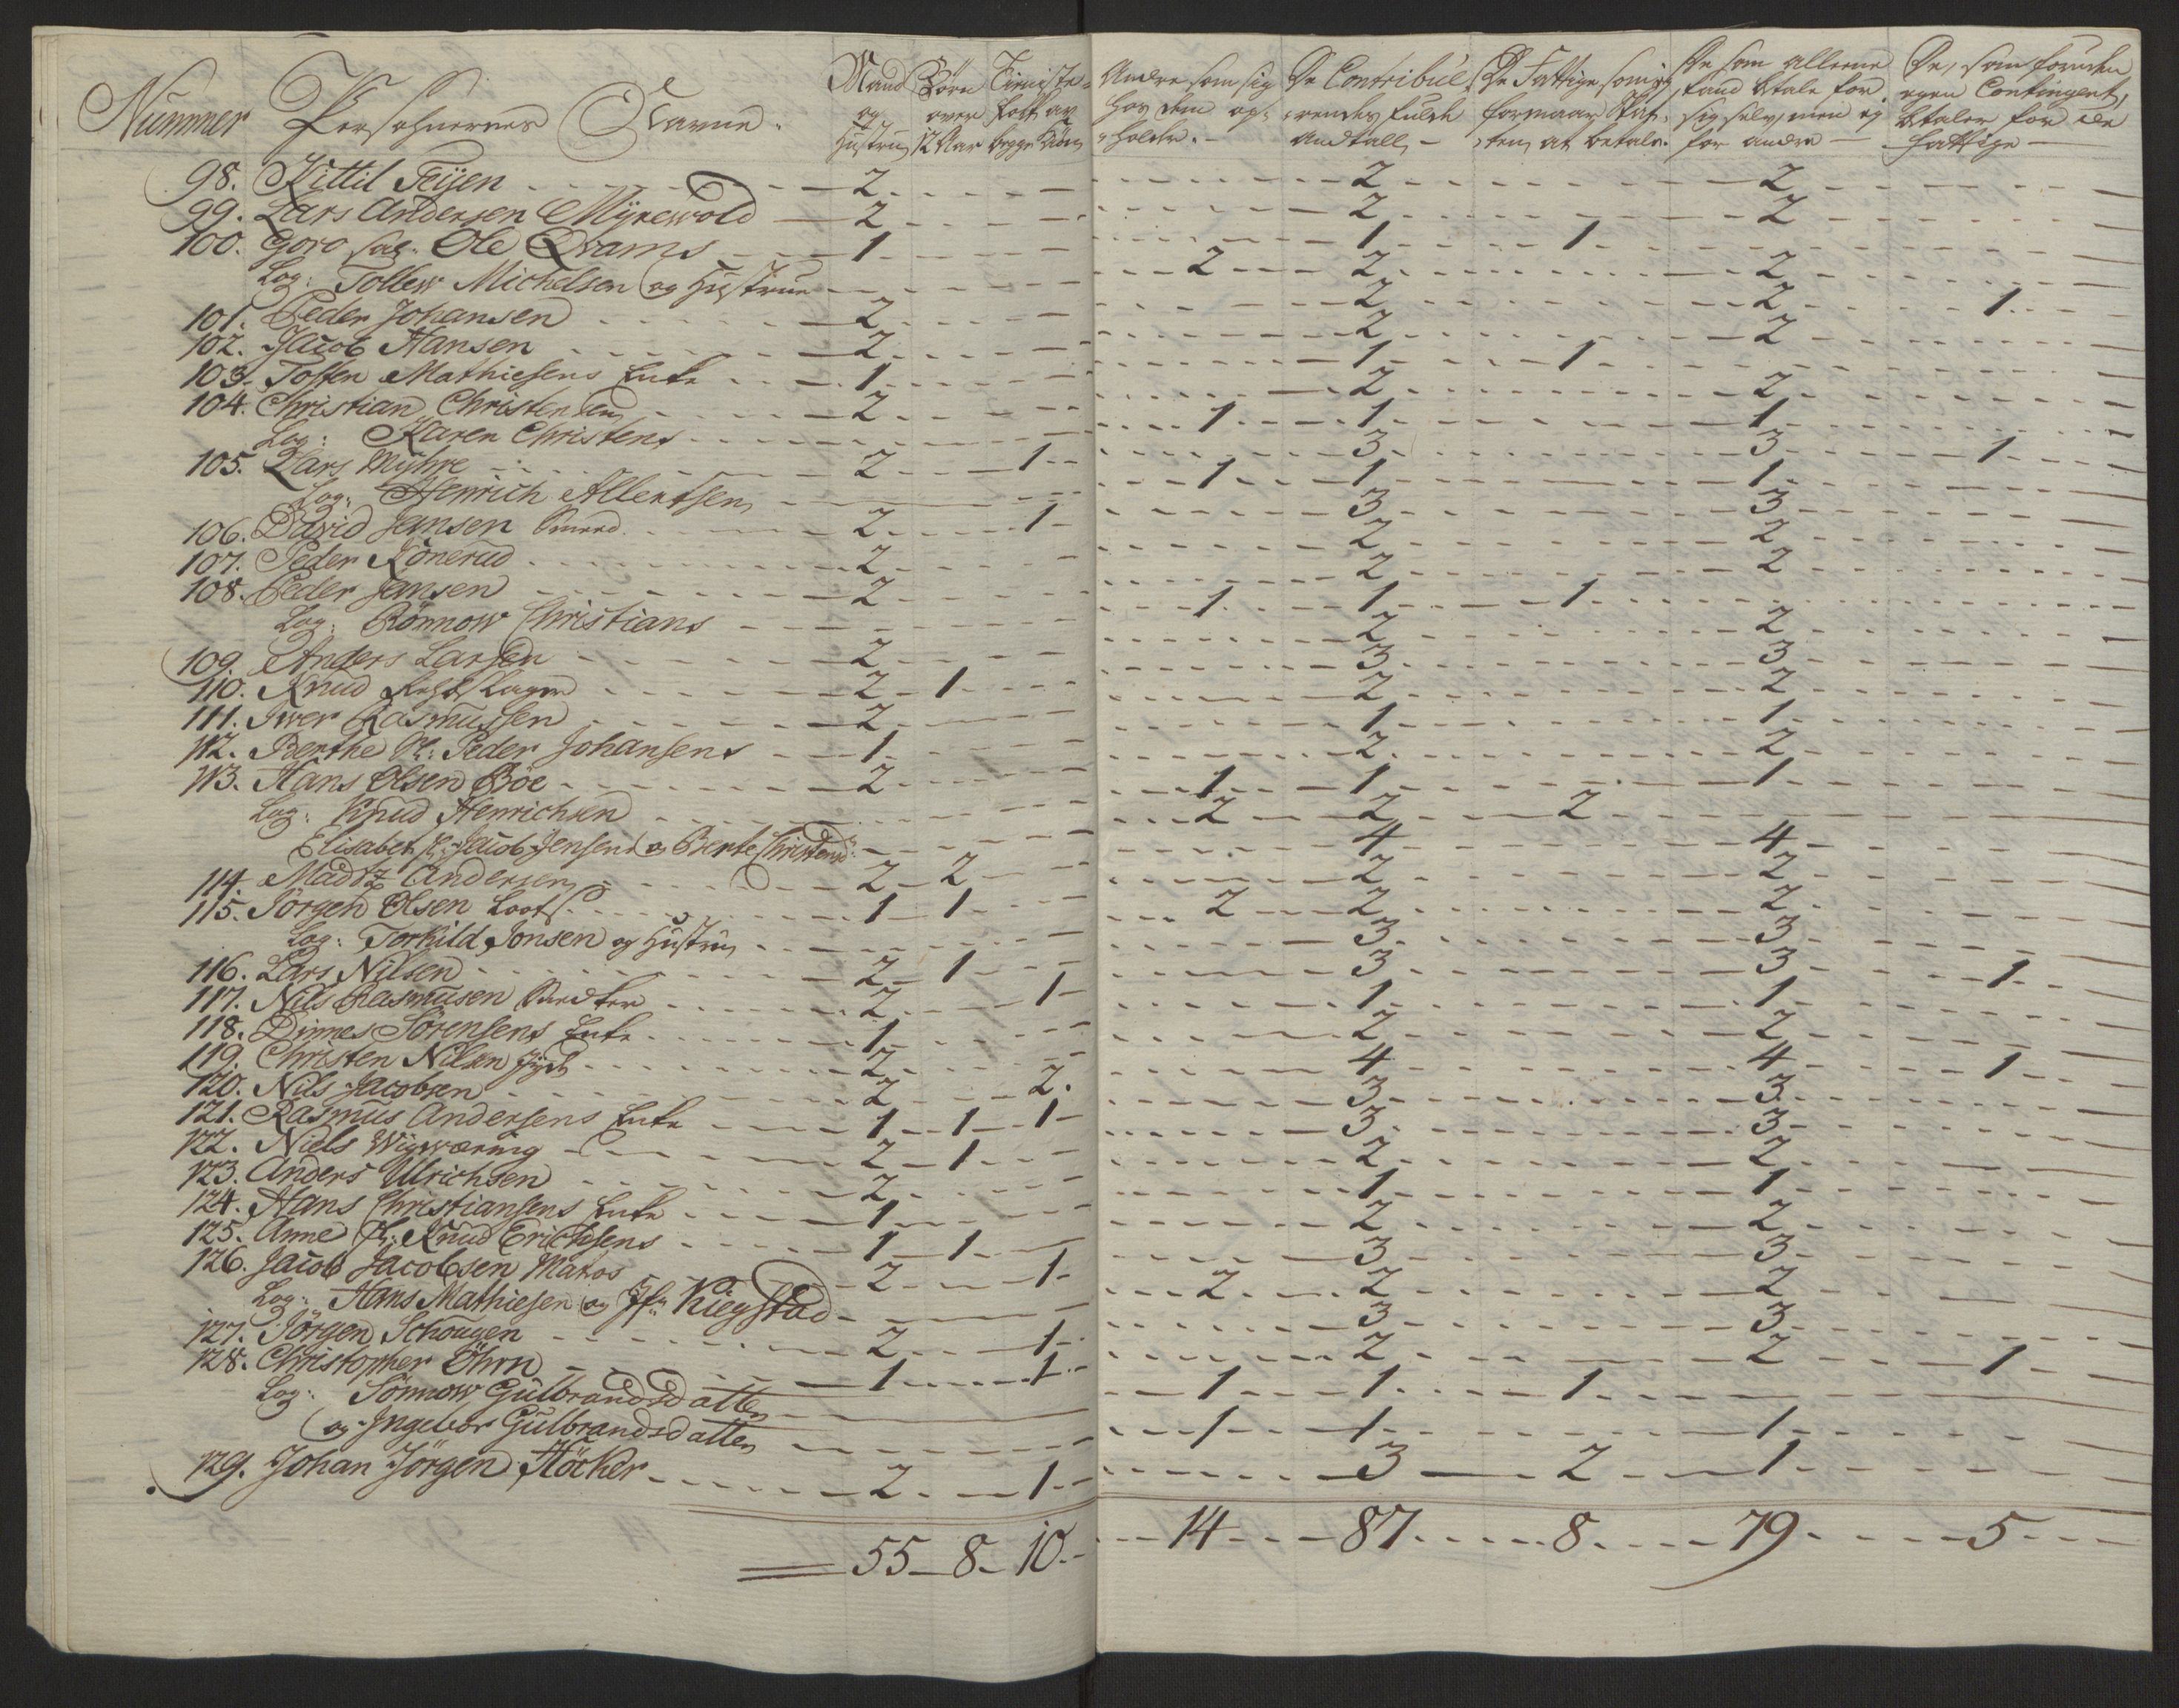 Nummer Persohnernes Navne. Mand og Hustru Børn over 12 Aar Tieniste- folk af begge Kiøn Andre som sig hos dem op- holder. De Contribue- rendes fulde Andtall De Fattige som ej formaar Skat- ten at betale. De som alleene kand betale for sig selv, men ej for andre De, som foruden egen Contingent, betaler for de fattige
98. Kittil Feijen 2 2 2
99. Lars Andersen Myrewold 2 2 2
100. Goro sal. Ole Qvams 1 1 1
Log: Tollew Michelsen og Hustrue 2 2 2
101. Peder Johansen 2 2 2 1
102. Jacob Hansen 2 2 2
103. Tosten Mathiesens Enke 1 1 1
104. Christian Christensen 2 2 2
Log: Karen Christens 1 1 1
105. Lars Myhre 2 1 3 3 1
Log: Henrich Albertsen 1 1 1
106. David Jansen Smeed 2 1 3 3
107. Peder Konerud 2 2 2
108. Peder Jansen 2 2 2
Log: Rönnow Christians 1 1 1
109. Anders Larsen 2 2 2
110. Knud Rebslager 2 1 3 3
111. Iver Rasmussen 2 2 2
112. Berthe Sl: Peder Johansens 1 1 1
113. Hans Olsen Böe 2 2 2
Log: Knud Henrichsen 1 1 1
Elisabet Sl: Jacob Jensens og Berte Christensd: 2 2 2
114. Madtz Andersen 2 2 4 4
115. Jörgen Olsen Loots 1 1 2 2
Log: Torkild Jonsen og Hustru 2 2 2
116. Lars Nilsen 2 1 3 3
117. Nils Rasmusen 2 1 3 3 1
118. Dinnes Sörensens Enke 1 1 1
119. Christen Nilsen Jyde 2 2 2
120. Nils Jacobsen 2 2. 4 4 1
121. Rasmus Andersens Enke 1 1 1 3 3
122. Niels Wigwæring 2 1 3 3
123. Anders Ulrichsen 2 2 2
124. Hans Christiansens Enke 1 1 1
125. Anne Sl: Knud Erichsens 1 1 2 2
126. Jacob Jacobsen Matros 2 1 3 3
Log: Hans Mathiesen og Jfr: Kiegstad 2 2 2
127. Jörgen Schougen 2 1 3 3
128. Christopher Öhrn 1 1 2 2 1
Log: Sönnow Gulbrandsdatter 1 1 1
og Ingebor Gulbrandsdatter 1 1 1
129. Johan Jörgen Höcker 2 1 3 2 1
55 8 10 14 87 8 79 5